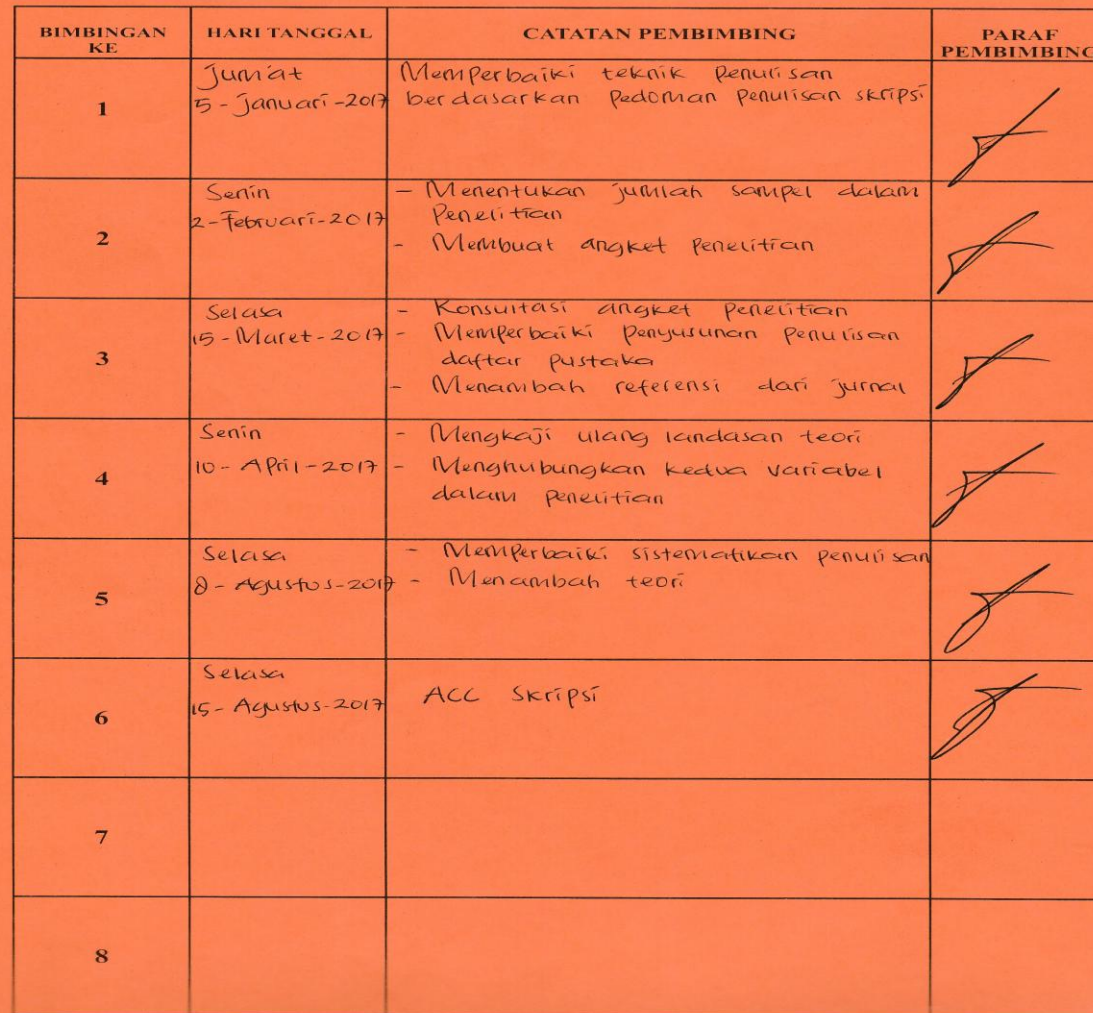 BIMBINGAN KE HARI TANGGAL CATATAN PEMBIMBING PARAF PEMBIMBING
1
Jum'at
5 - Januari - 2017
Memperbaiki teknik Penulisan
berdasarkan Pedoman Penulisan skripsi
2
Senin
2 - Februari - 2017
- Menentukan jumlah sampel dalam
Penelitian
- Membuat angket Penelitian
3
Selasa
15 - Maret - 2017
- Konsultasi angket Penelitian
- Memperbaiki penyusunan Penulisan
daftar pustaka
- Menambah referensi dari jurnal
4
Senin
10 - April - 2017
- Mengkaji ulang landasan teori
- Menghubungkan kedua variabel
dalam penelitian
5
Selasa
8 - Agustus - 2017
- Memperbaiki sistematikan penulisan
- Menambah teori
6
Selasa
15 - Agustus - 2017
ACC Skripsi
7
8